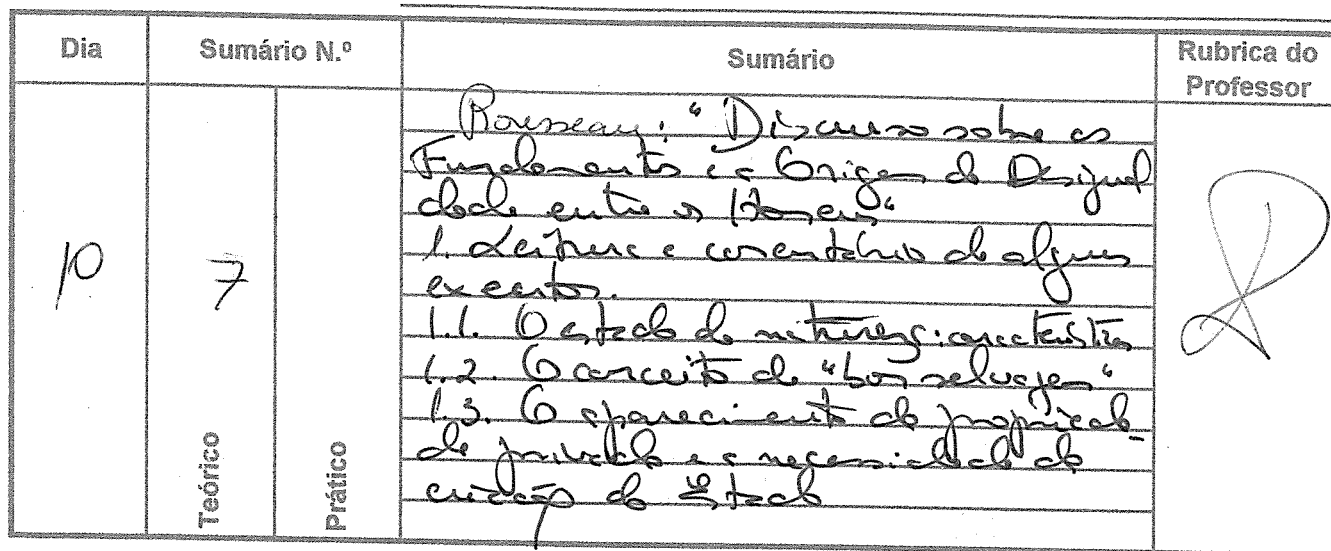 Dia
Sumário N.º
Sumário
Rubrica do
Professor
10
7
Teórico
Prático
Rousseau: "Discurso sobre os
Fundamentos e a Origem da Desigual
dade entre os Homens"
1. Leitura e comentário de alguns
excertos.
1.1. O estado de natureza: características
1.2. O conceito de "bom selvagem"
1.3. O aparecimento da proprieda-
de privada e a necessidade da
criação do Estado